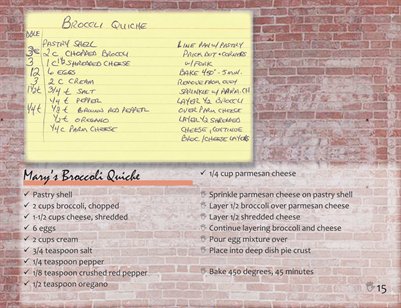 BROCCOLI QUICHE
DBLE
PASTRY SHELL LINE PAN W/ PASTRY
2 C CHOPPED BROCOLI PRICK BOT + CORNERS
3 1 C 1/2 SHREDDED CHEESE W/ FORK
12 6 EGGS BAKE 450° - 5 MIN.
3 2 C CREAM REMOVE FROM OVEN
3/4 t SALT SPRINKLE W/ PARM. CH
1/4 t PEPPER LAYER 1/2 BROCOLI
1/4 t 1/8 t CRUSHED RED PEPPER OVER PARM CHEESE
1/2 t OREGANO LAYER 1/2 SHREDDED
1/4 C PARM CHEESE CHEESE, CONTINUE
BROC/CHEESE LAYERS
Mary's Broccoli Quiche
✓ Pastry shell
✓ 2 cups broccoli, chopped
✓ 1-1/2 cups cheese, shredded
✓ 6 eggs
✓ 2 cups cream
✓ 3/4 teaspoon salt
✓ 1/4 teaspoon pepper
✓ 1/8 teaspoon crushed red pepper
✓ 1/2 teaspoon oregano
✓ 1/4 cup parmesan cheese
Sprinkle parmesan cheese on pastry shell
Layer 1/2 broccoli over parmesan cheese
Layer 1/2 shredded cheese
Continue layering broccoli and cheese
Pour egg mixture over
Place into deep dish pie crust
Bake 450 degrees, 45 minutes
15